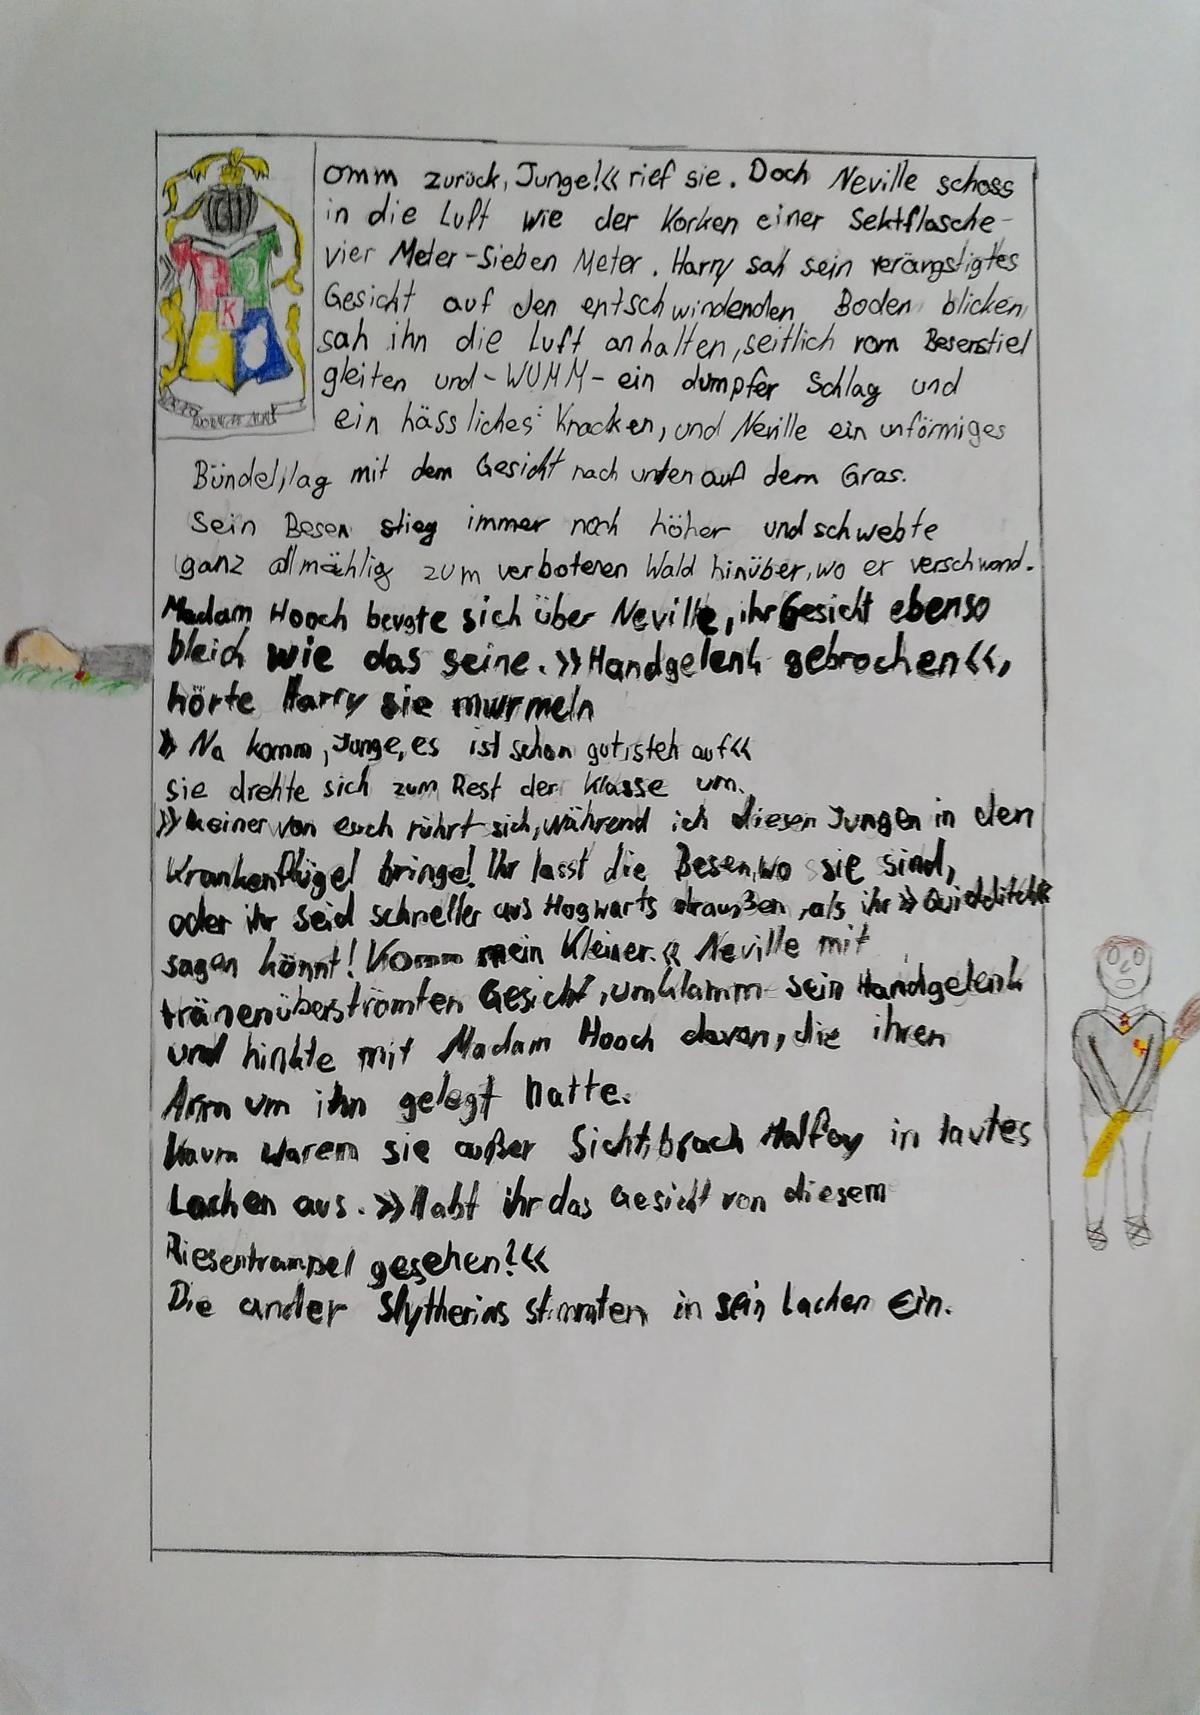 K
omm zurück, Junge!« rief sie. Doch Neville schoss
in die Luft wie der Korken einer Sektflasche-
vier Meter-Sieben Meter. Harry sah sein verängstigtes
Gesicht auf den entschwindenden Boden blicken,
sah ihn die Luft anhalten, seitlich vom Besenstiel
gleiten und-WUMM-ein dumpfer Schlag und
ein hässliches Knacken, und Neville ein unförmiges
Bündel, lag mit dem Gesicht nach unten auf dem Gras.
Sein Besen stieg immer noch höher und schwebte
ganz allmählig zum verbotenen Wald hinüber, wo er verschwand.
Madam Hooch beugte sich über Neville, ihr Gesicht ebenso
bleich wie das seine. »Handgelenk gebrochen«,
hörte Harry sie murmeln
» Na komm, Junge, es ist schon gut, steh auf«
sie drehte sich zum Rest der Klasse um.
»keiner von euch rührt sich, während ich diesen Jungen in den
Krankenflügel bringe! Ihr lasst die Besen, wo sie sind,
oder ihr seid schneller aus Hogwarts draußen, als ihr »Quidditch«
sagen könnt! Komm mein Kleiner.« Neville mit
tränenüberströmten Gesicht, umklamm sein Handgelenk
und hinkte mit Madam Hooch davon, die ihren
Arm um ihn gelegt hatte.
Kaum waren sie außer Sicht, brach Malfoy in lautes
Lachen aus. »Habt ihr das Gesicht von diesem
Riesentrampel gesehen?«
Die ander Slytherins stimmten in sein Lachen ein.